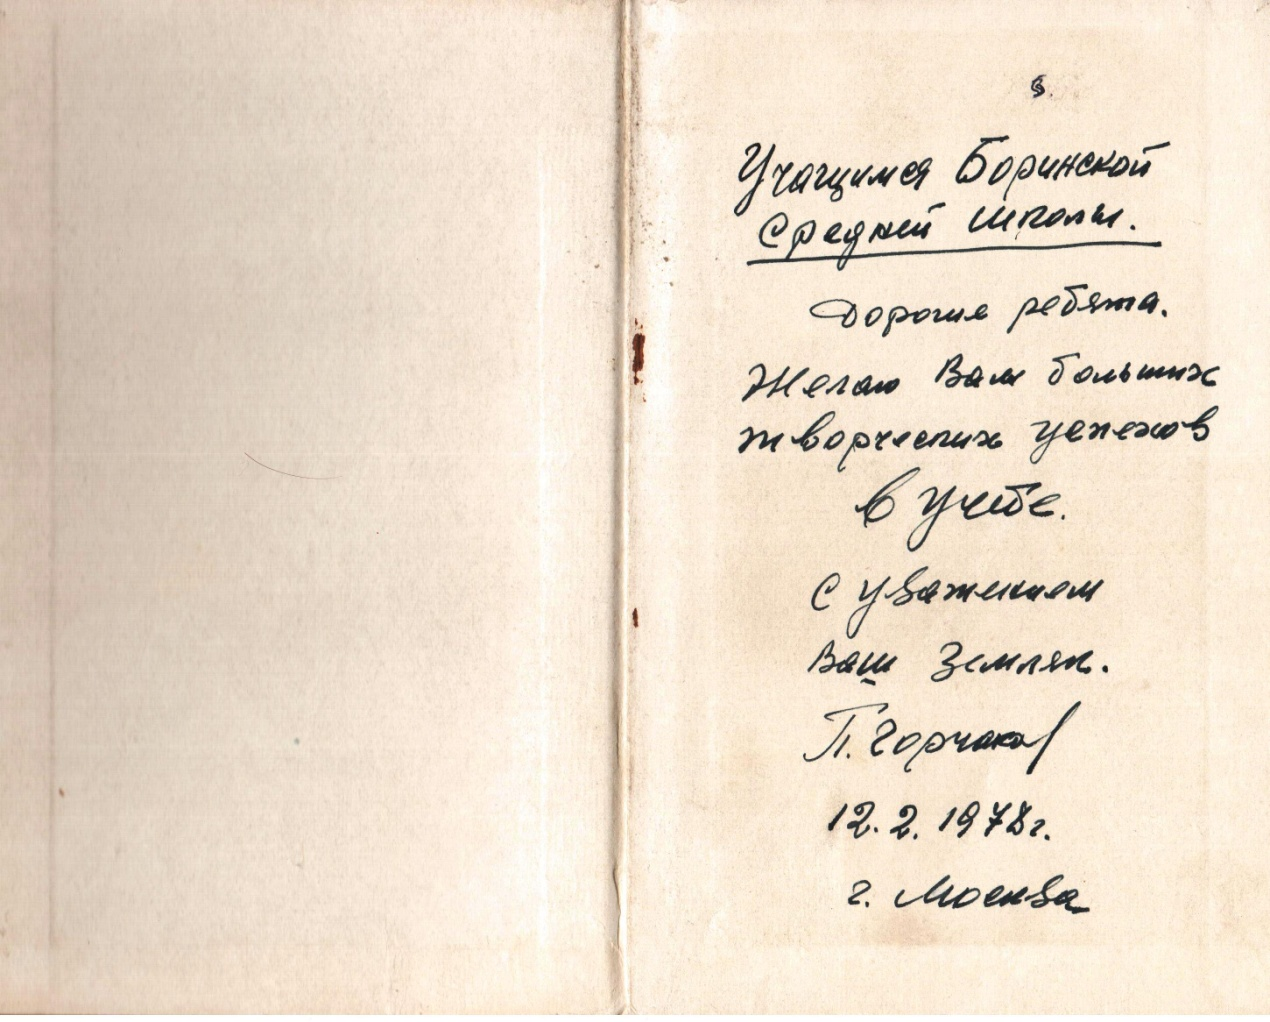 Учащимся Боринской
Средней школы.
Дорогие ребята.
Желаю Вам больших
творческих успехов
в учебе.
С уважением
Ваш Земляк.
П. Горчаков
12.2.1978г.
г. Москва